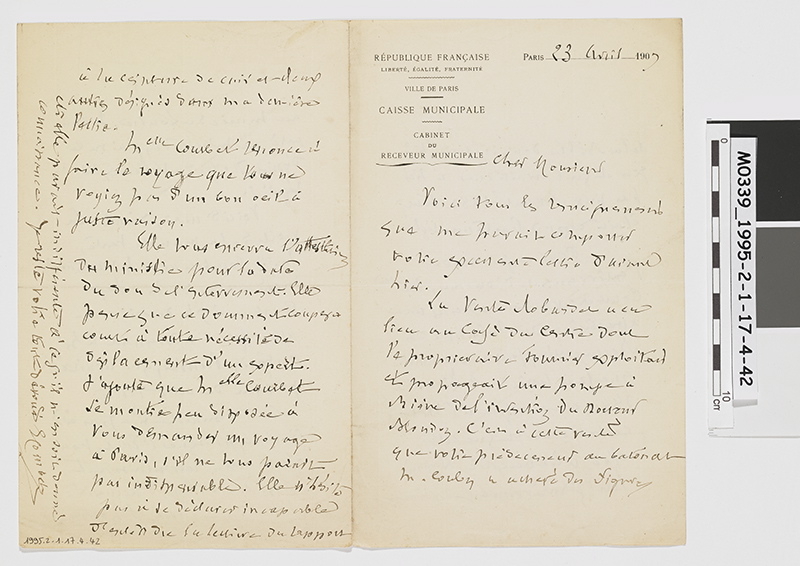 RÉPUBLIQUE FRANÇAISE
LIBERTÉ, ÉGALITÉ, FRATERNITÉ
VILLE DE PARIS
CAISSE MUNICIPALE
CABINET
DU
RECEVEUR MUNICIPALE
PARIS 23 Avril 1907
Cher Monsieur
Voici tous les renseignements
que me paraît comporter
votre lettre
hier.
La vente a eu
lieu au Café du Centre dont
le propriétaire exploitait
et propageait une pompe à
bière de l'invention du
. C'est à cette vente
que votre prédécesseur
M. a acheté des
à la ceinture de cuir et deux
autres désignés dans ma dernière
lettre.
Melle Courbet renonce à
faire le voyage que vous ne
voyiez pas d'un bon oeil à
juste raison.
Elle vous enverra l'attestation
du ministre pour la date
du don de l'enterrement. Elle
pense que ce document coupera
court à toute nécessité de
déplacement d'un expert.
J'ajoute que Melle Courbet
se montre peu disposée à
vous demander un voyage
à Paris, s'il ne vous paraît
pas indispensable. Elle n'hésite
pas à se déclarer incapable
la lecture du rapport
et elle paraît indifférente à ce qu'il m'en soit donné
connaissance. votre tout dévoué
1995.2.1.17.4.42
M0339_1995-2-1-17-4-42
0
10
cm